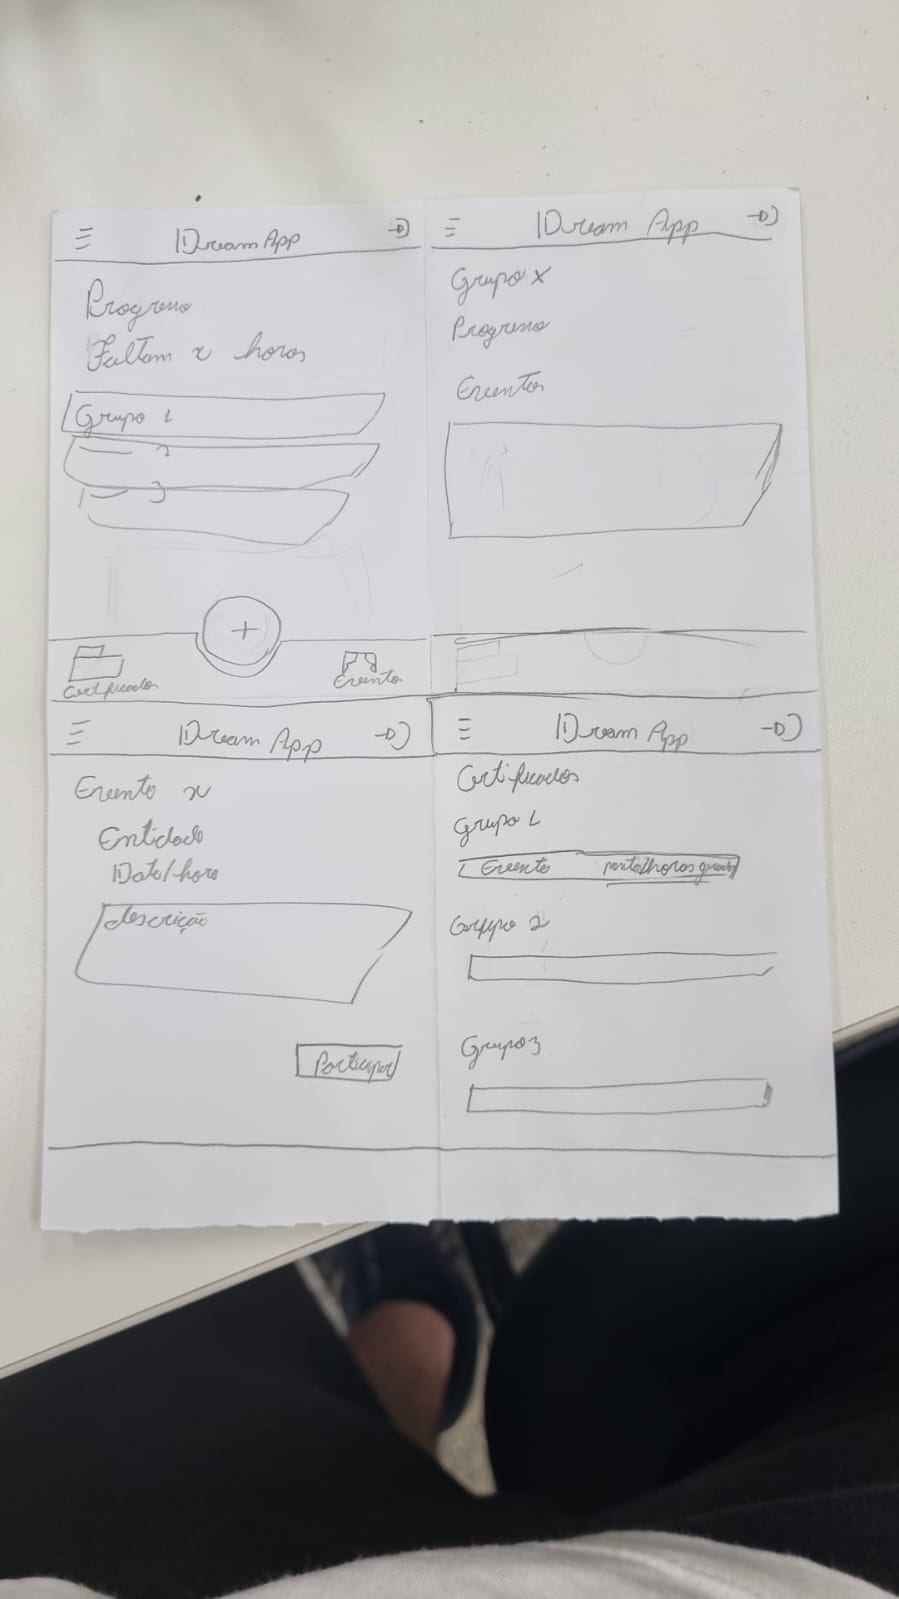 Dream App
Progresso
Faltam x horas
Grupo 1
2
3
+
Certificados
Evento
Dream App
Grupo x
Progresso
Eventos
Dream App
Evento x
Entidade
Data/hora
descrição
Participar
Dream App
Certificados
Grupo 1
Evento
Grupo 2
Grupo 3